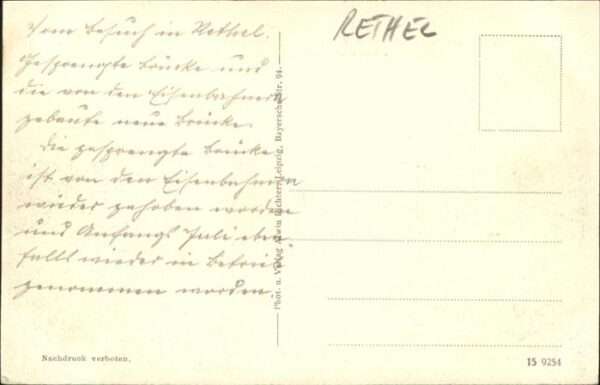 Vom Besuch in Rethel.
Gesprengte Brücke und
die von den Eisenbahnern
gebaute neue Brücke.
Die gesprengte Brücke
ist von den Eisenbahnern
wieder gehoben worden
und Anfangs Juli eben
falls wieder in Betrieb
genommen worden.
RETHEL
Phot. u. Verlag Richter, Leipzig, Bayerschestr. 94.
Nachdruck verboten.
15 9254